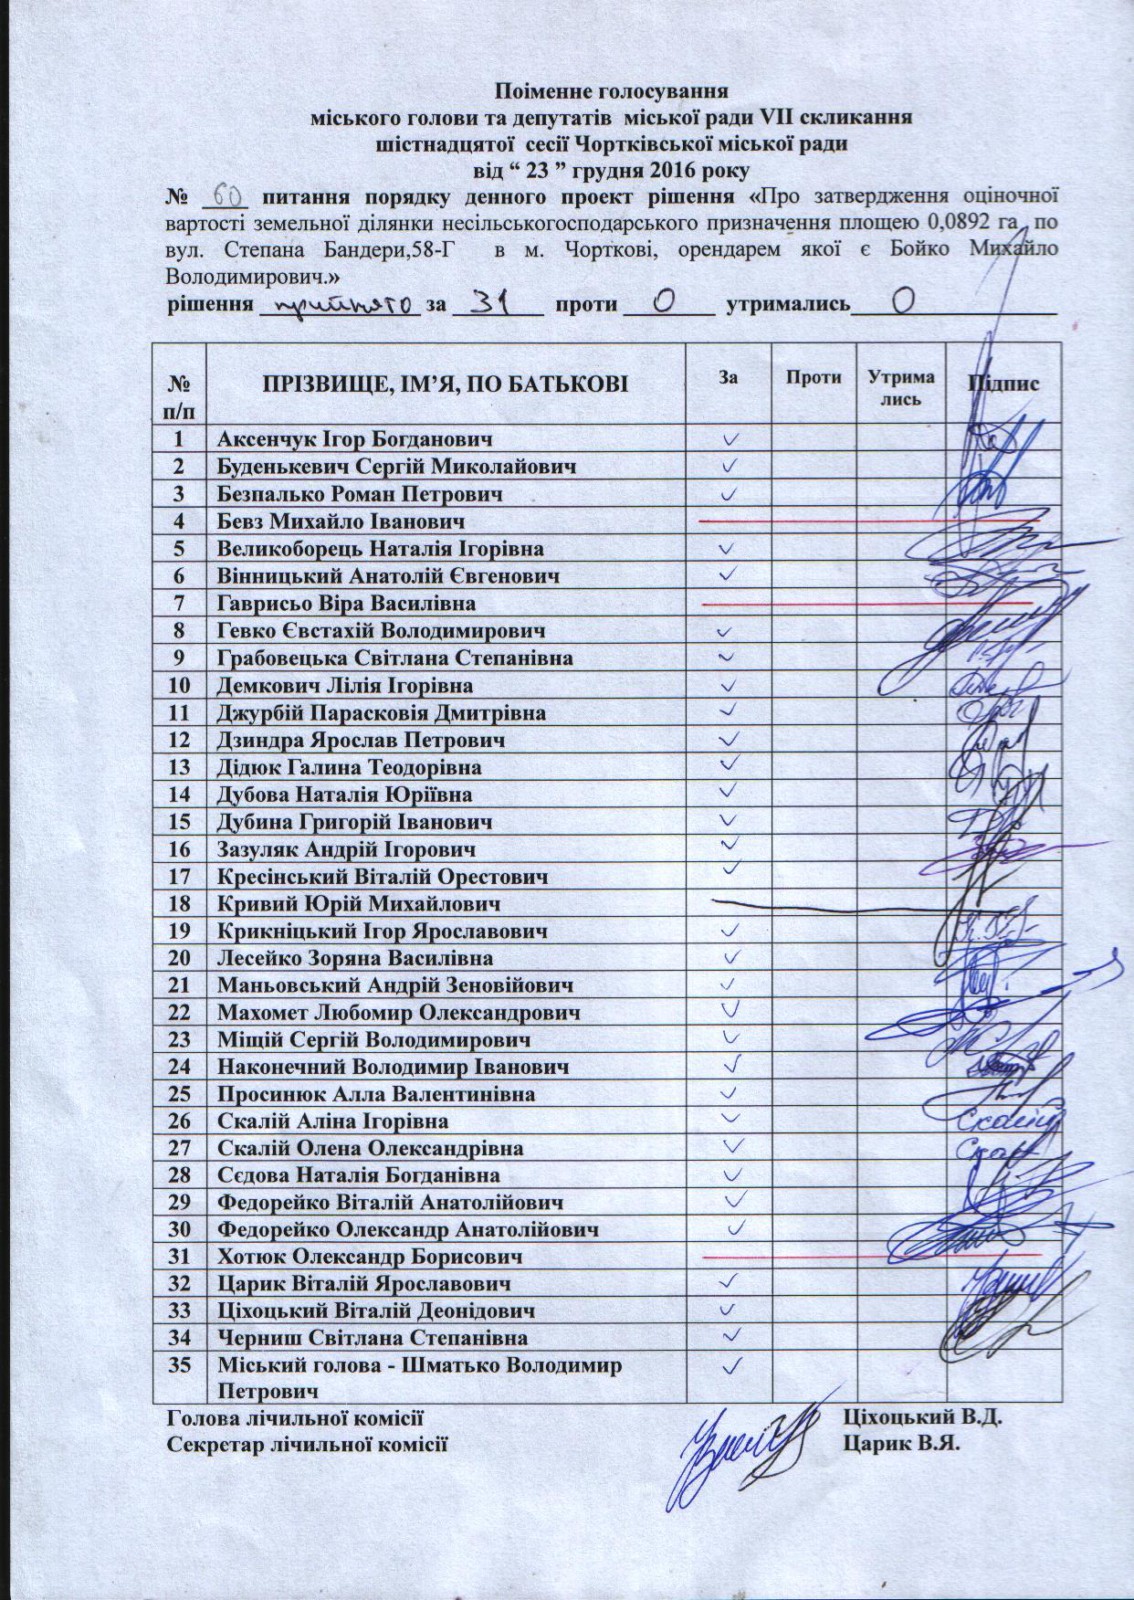 Поіменне голосування
міського голови та депутатів міської ради VII скликання
шістнадцятої сесії Чортківської міської ради
від “ 23 ” грудня 2016 року
№ 60 питання порядку денного проект рішення «Про затвердження оціночної
вартості земельної ділянки несільськогосподарського призначення площею 0,0892 га по
вул. Степана Бандери,58-Г в м. Чорткові, орендарем якої є Бойко Михайло
Володимирович.»
рішення прийнято за 31 проти 0 утримались 0
№ п/п ПРІЗВИЩЕ, ІМ’Я, ПО БАТЬКОВІ За Проти Утрима лись Підпис
1 Аксенчук Ігор Богданович
2 Буденькевич Сергій Миколайович
3 Безпалько Роман Петрович
4 Бевз Михайло Іванович
5 Великоборець Наталія Ігорівна
6 Вінницький Анатолій Євгенович
7 Гаврисьо Віра Василівна
8 Гевко Євстахій Володимирович
9 Грабовецька Світлана Степанівна
10 Демкович Лілія Ігорівна
11 Джурбій Парасковія Дмитрівна
12 Дзиндра Ярослав Петрович
13 Дідюк Галина Теодорівна
14 Дубова Наталія Юріївна
15 Дубина Григорій Іванович
16 Зазуляк Андрій Ігорович
17 Кресінський Віталій Орестович
18 Кривий Юрій Михайлович
19 Крикніцький Ігор Ярославович
20 Лесейко Зоряна Василівна
21 Маньовський Андрій Зеновійович
22 Махомет Любомир Олександрович
23 Міщій Сергій Володимирович
24 Наконечний Володимир Іванович
25 Просинюк Алла Валентинівна
26 Скалій Аліна Ігорівна
27 Скалій Олена Олександрівна
28 Сєдова Наталія Богданівна
29 Федорейко Віталій Анатолійович
30 Федорейко Олександр Анатолійович
31 Хотюк Олександр Борисович
32 Царик Віталій Ярославович
33 Ціхоцький Віталій Деонідович
34 Черниш Світлана Степанівна
35 Міський голова - Шматько Володимир
Петрович
Голова лічильної комісії Ціхоцький В.Д.
Секретар лічильної комісії Царик В.Я.